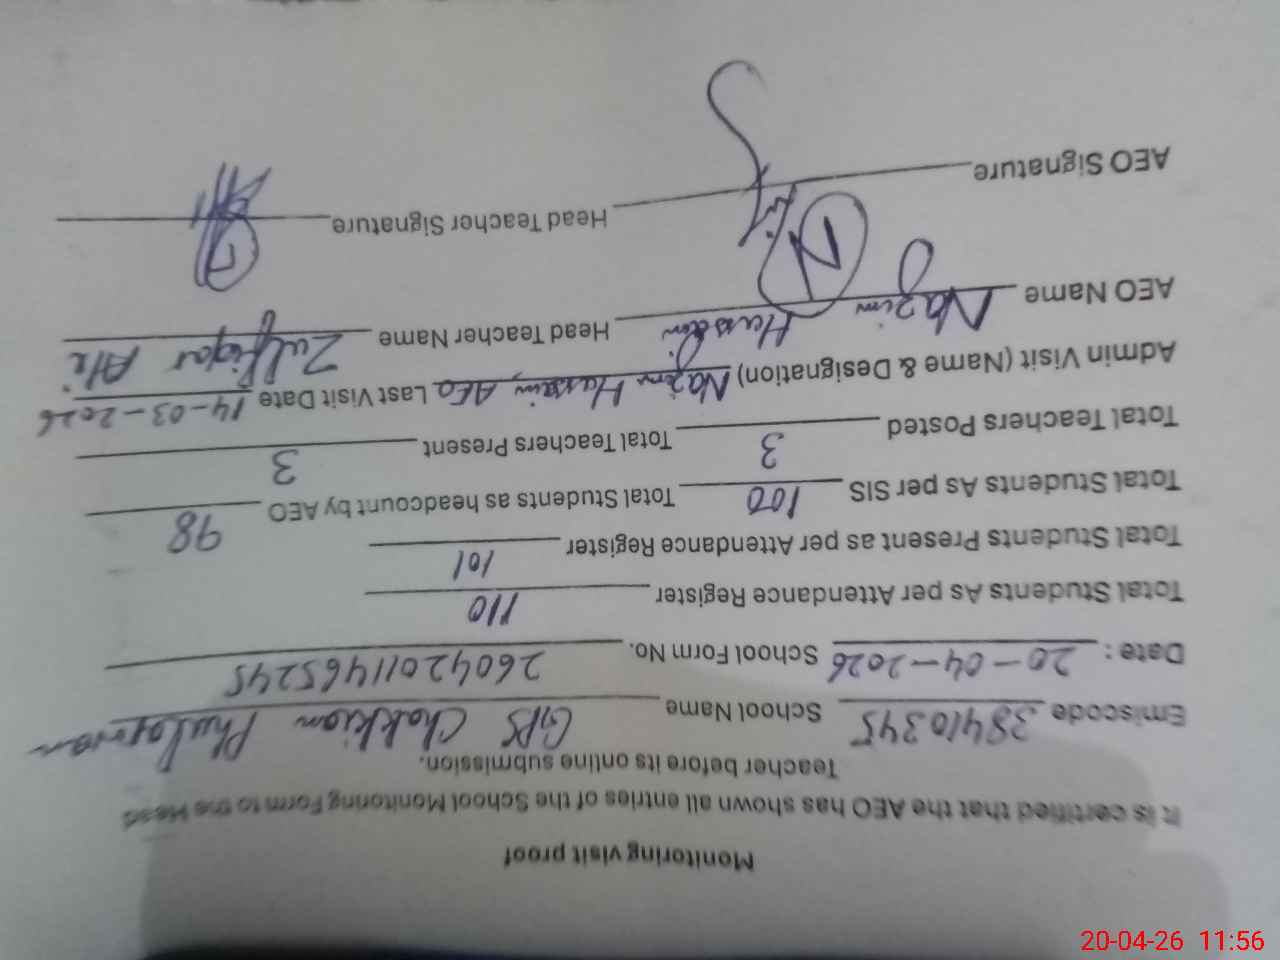 Monitoring visit proof
It is certified that the AEO has shown all entries of the School Monitoring Form to the Head
Teacher before its online submission.
Emiscode 38410345 School Name GPS Chakkian
Date: 20-04-2026 School Form No. 26042011465245
Total Students As per Attendance Register 110
Total Students Present as per Attendance Register 101
Total Students As per SIS 100 Total Students as headcount by AEO 98
Total Teachers Posted 3 Total Teachers Present 3
Admin Visit (Name & Designation) Nazim Hussain, AEO Last Visit Date 14-03-2026
AEO Name Nazim Hussain Head Teacher Name Zulfiqar Ali
AEO Signature Head Teacher Signature
20-04-26 11:56